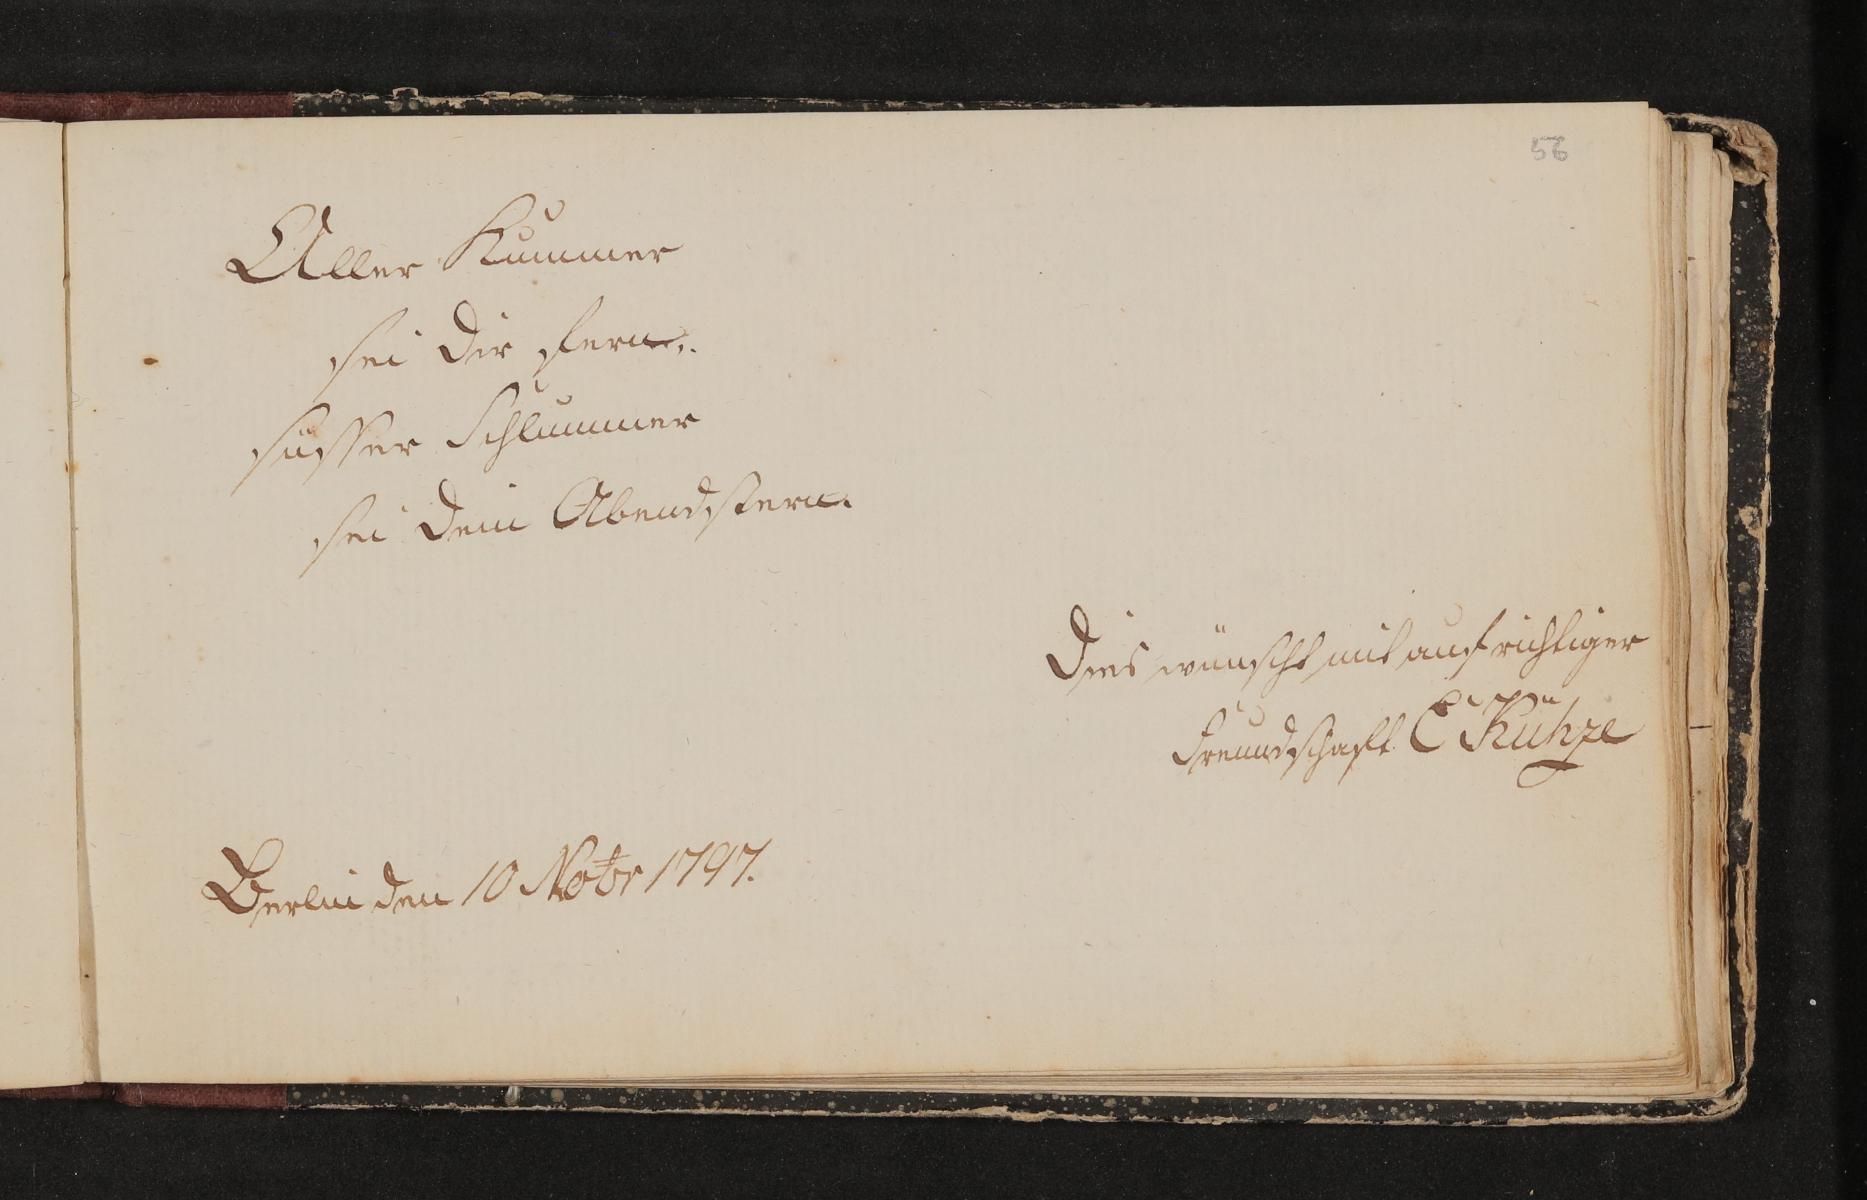 56
Aller Kummer
sei dir fern,
süsser Schlummer
sei dein Abendstern.
Dies wünscht mit aufrichtiger
Freundschaft C Kühze
Berlin den 10 Nobr 1797.